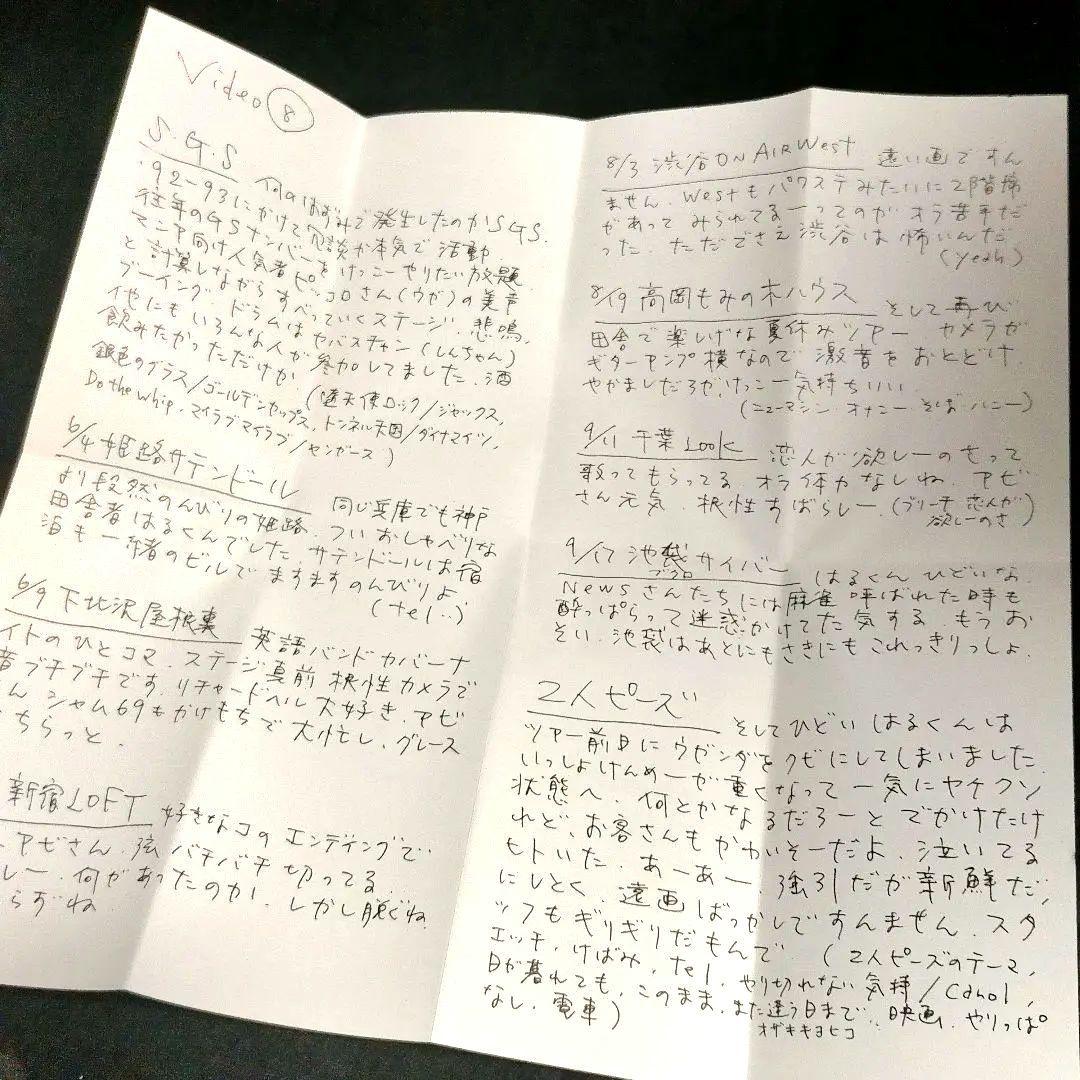 Video ⑧
S.G.S
'92-93にかけて冗談が本気で活動.
何のはずみで発生したのかSGS.
往年のGSナンバーをけっこーやりたい放題
マニア向け人気者ピッコロさん(ウガ)の美声
と計算しながらすべっていくステージ.悲鳴,
ブーイング.ドラムはセバスチャン(しんちゃん)
他にもいろんな人が参加してました.酒
飲みたかっただけか.
(堕天使ロック/ジャックス,
銀色のグラス/ゴールデンカップス,トンネル天国/ダイナマイツ,
Do the whip.マイラブマイラブ/センガース)
6/4 姫路サテンドール
同じ兵庫でも神戸
より段然のんびりの姫路.ついおしゃべりな
田舎者はるくんでした.サテンドールは宿
泊も一緒のビルでますますのんびりよ
(tel..)
6/9 下北沢屋根裏
英語バンドカバーナ
イトのひとコマ.ステージ真前 根性カメラで
音ブチブチです.リチャードヘル大好き.アビ
ん シャム69もかけもちで大忙し.グレース
ちらっと.
新宿LOFT
好きなコのエンディングで
アビさん.弦バチバチ切ってる.
レー.何があったのか!しかし脱ぐね.
らずね
8/3 渋谷ON AIR West
遠い画ですん
ません.Westもパワステみたいに2階席
があって みられてるーってのが オラ苦手だ
った.ただでさえ渋谷は怖いんだ
(yeah)
8/19 高岡もみの木ハウス
そして再び
田舎で楽しげな夏休みツアー カメラが
ギターアンプ横なので 激音をおとどけ.
やかましだろが,けっこー気持ちいい.
(ニューマシン.オナニー.そばにハニー)
9/11 千葉LOOK
恋人が欲しーのさって
歌ってもらってる.オラ体力なしね.アビ
さん元気.根性すばらしー.(ブリーチ 恋人が
欲しーのさ)
9/17 池袋サイバー
ブクロ
はるくん ひどいな
Newsさんたちには麻雀 呼ばれた時も
酔っぱらって迷惑かけてた気する.もうお
そい.池袋はあとにもさきにもこれっきりっしょ.
2人ピーズ
そしてひどい はるくんは
ツアー前日にウガンダをクビにしてしまいました.
いっしょけんめーが重くなって 一気にヤケクソ
状態へ.何とかなるだろーと でかけたけ
れど,お客さんもかわいそーだよ.泣いてる
ヒトいた.あーあー.強引だが新鮮だ,
にしとく.遠画ばっかしですんません.スタ
ッフもギリギリだもんで.(2人ピーズのテーマ,
エッチ,けばみ,tel,やり切れない気持/Canol,
日が暮れても,このまま,また違う日まで..映画.やりっぱ
オザキキヨヒコ
なし.電車)